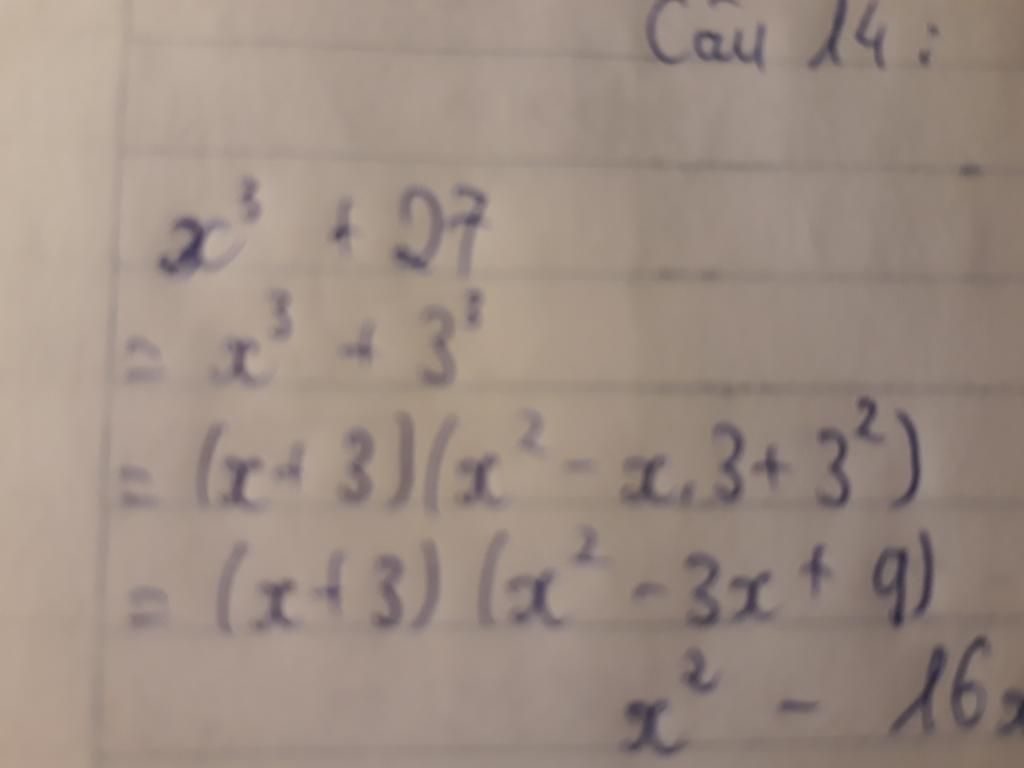 Câu 14:
x³ + 27
= x³ + 3³
= (x + 3)(x² - x.3 + 3²)
= (x + 3) (x² - 3x + 9)
x² - 16x